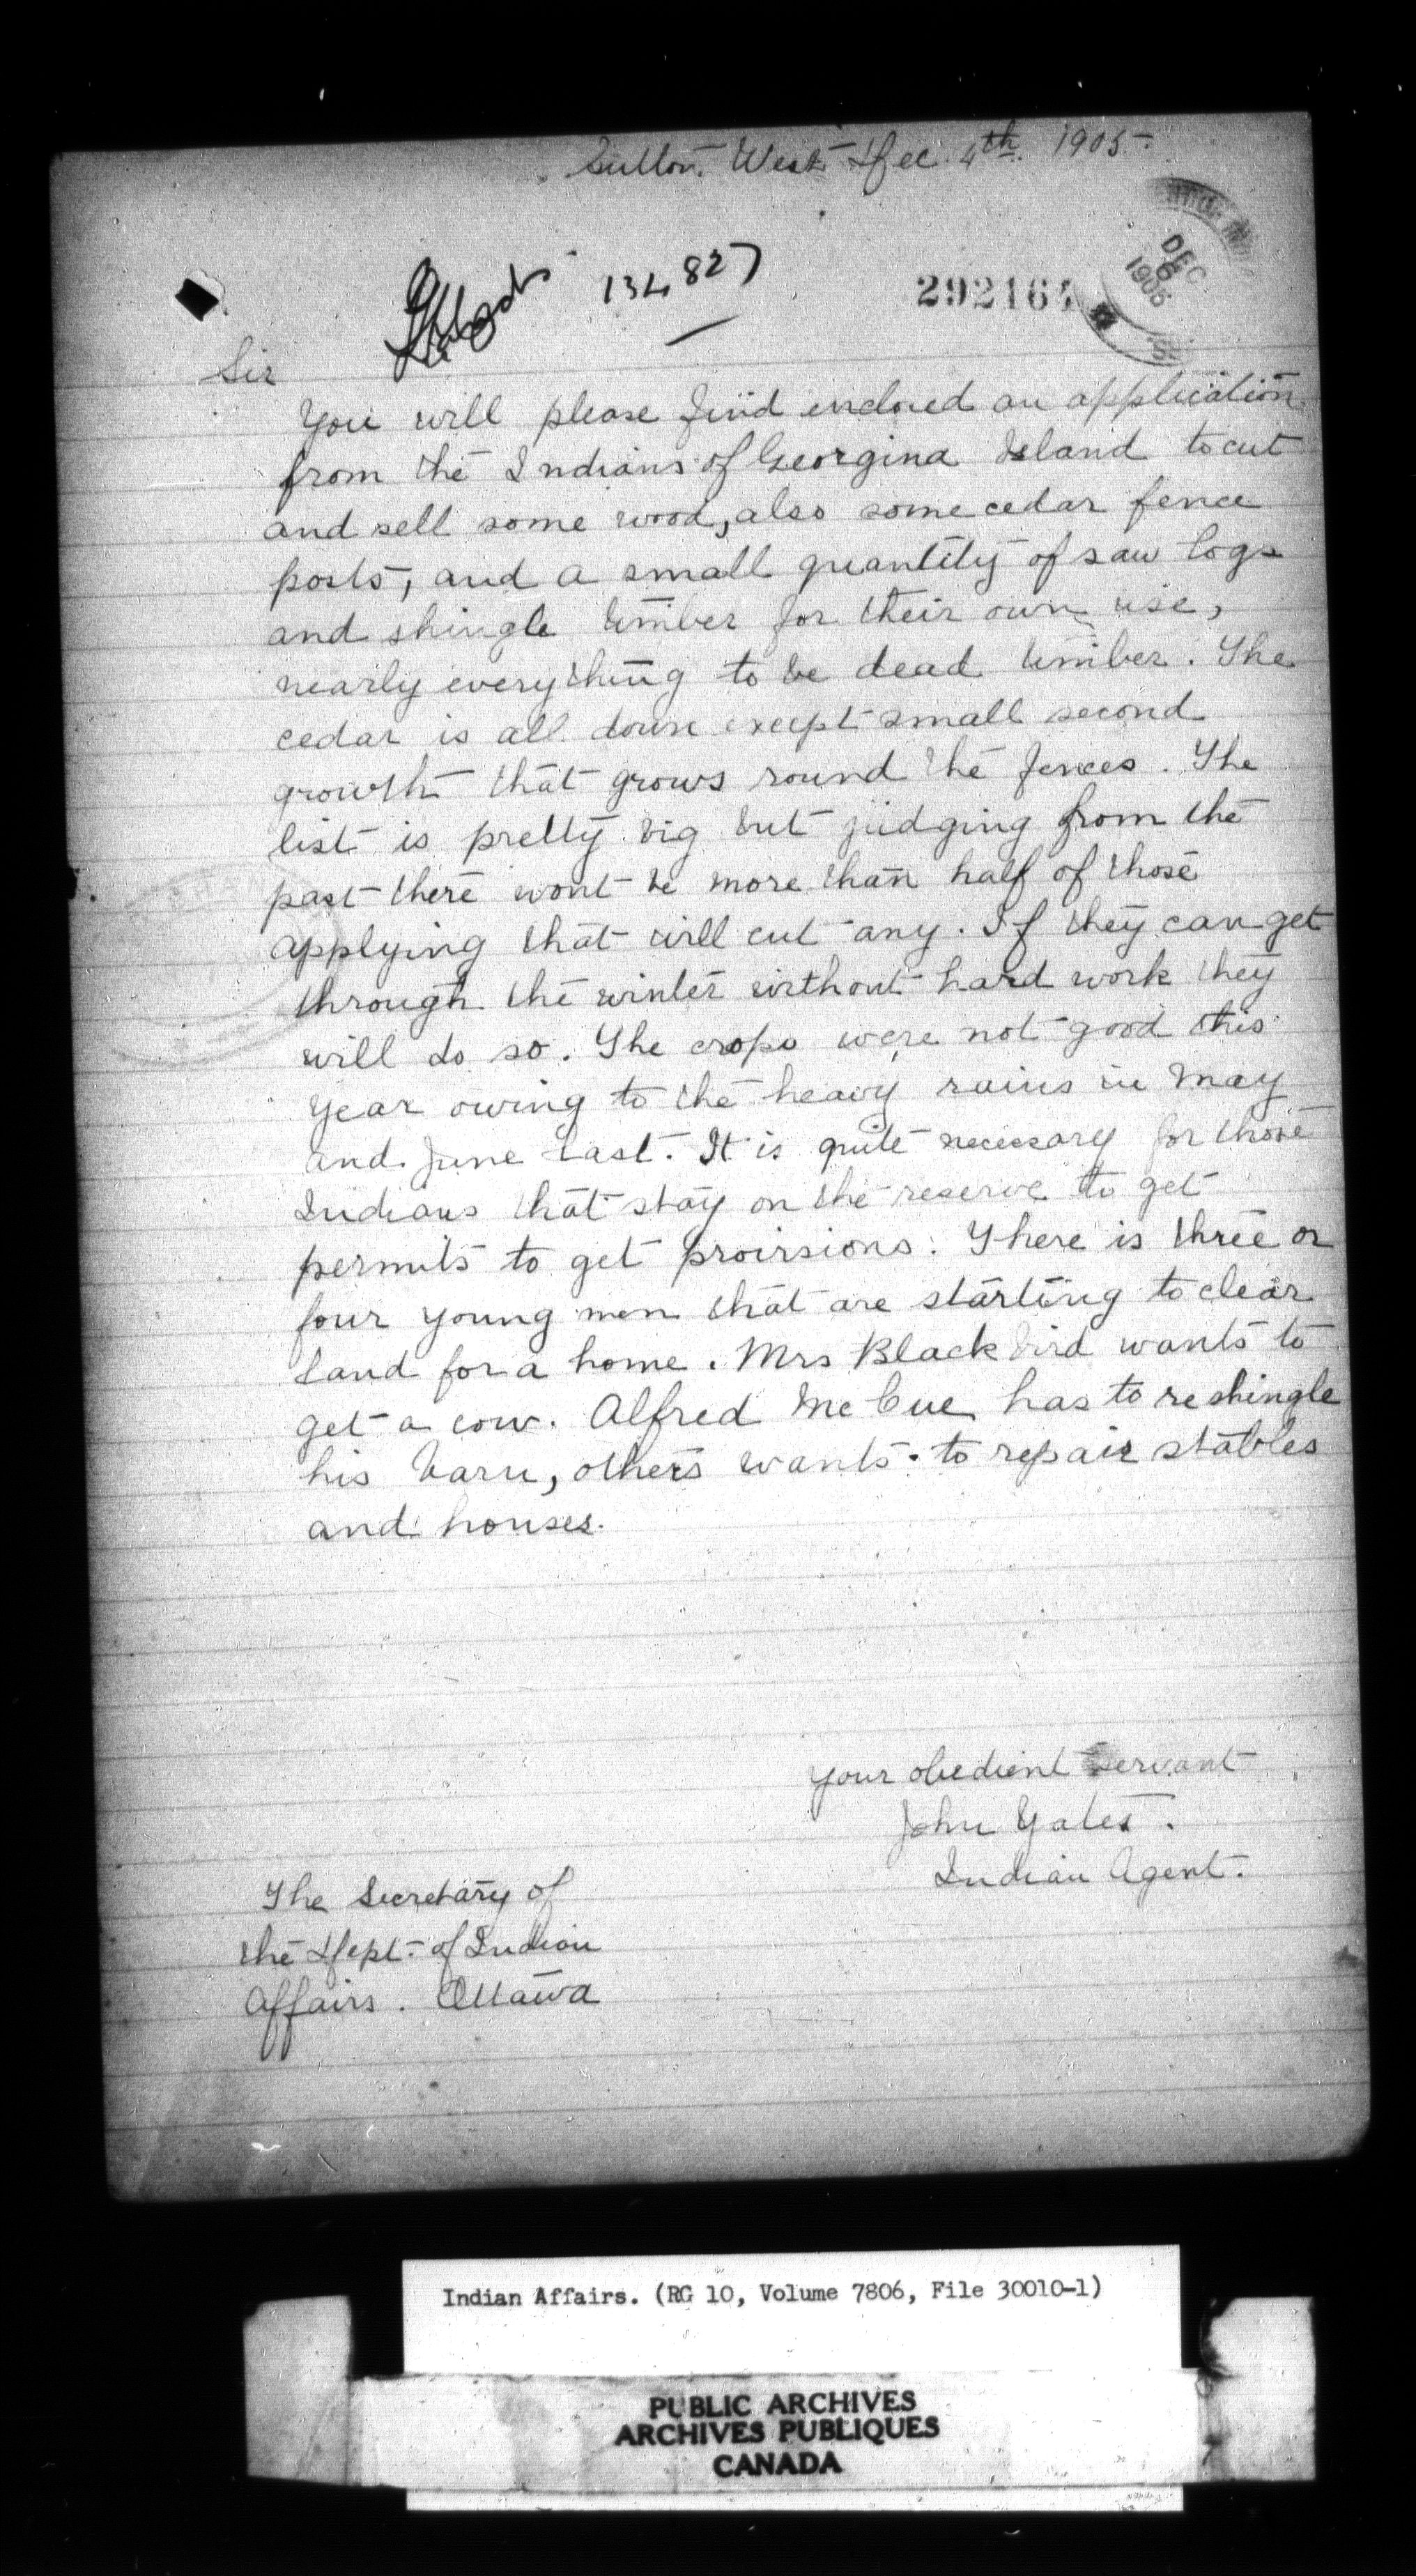 Sutton West Dec 4th 1905
DEC 6 1905
134827
292164
Sir
You will please find enclosed an application
from the Indians of Georgina Island to cut
and sell some wood, also some cedar fence
posts, and a small quantity of saw logs
and shingle timber for their own use,
nearly everything to be dead timber. The
cedar is all down except small second
growth that grows round the fences. The
list is pretty big but judging from the
past there wont be more than half of those
applying that will cut any. If they can get
through the winter without hard work they
will do so. The crops were not good this
year owing to the heavy rains in May
and June last. It is quite necessary for those
Indians that stay on the reserve to get
permits to get provisions. There is three or
four young men that are starting to clear
land for a home. Mrs Blackbird wants to
get a cow. Alfred McCue has to reshingle
his barn, others wants to repair stables
and houses.
Your obedient servant
John Yates.
Indian Agent.
The Secretary of
the Dept. of Indian
Affairs. Ottawa
Indian Affairs. (RG 10, Volume 7806, File 30010-1)
PUBLIC ARCHIVES
ARCHIVES PUBLIQUES
CANADA